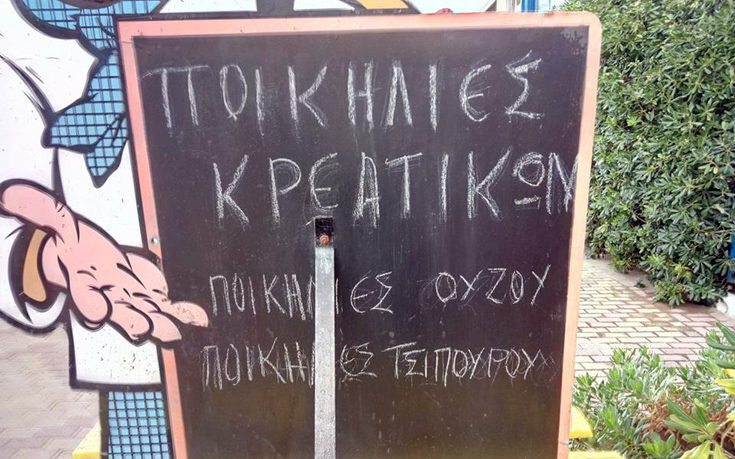 ΠΟΙΚΗΛΙΕΣ
ΚΡΕΑΤΙΚΩΝ
ΠΟΙΚΗΛΙΕΣ ΟΥΖΟΥ
ΠΟΙΚΗΛΙΕΣ ΤΣΙΠΟΥΡΟΥ